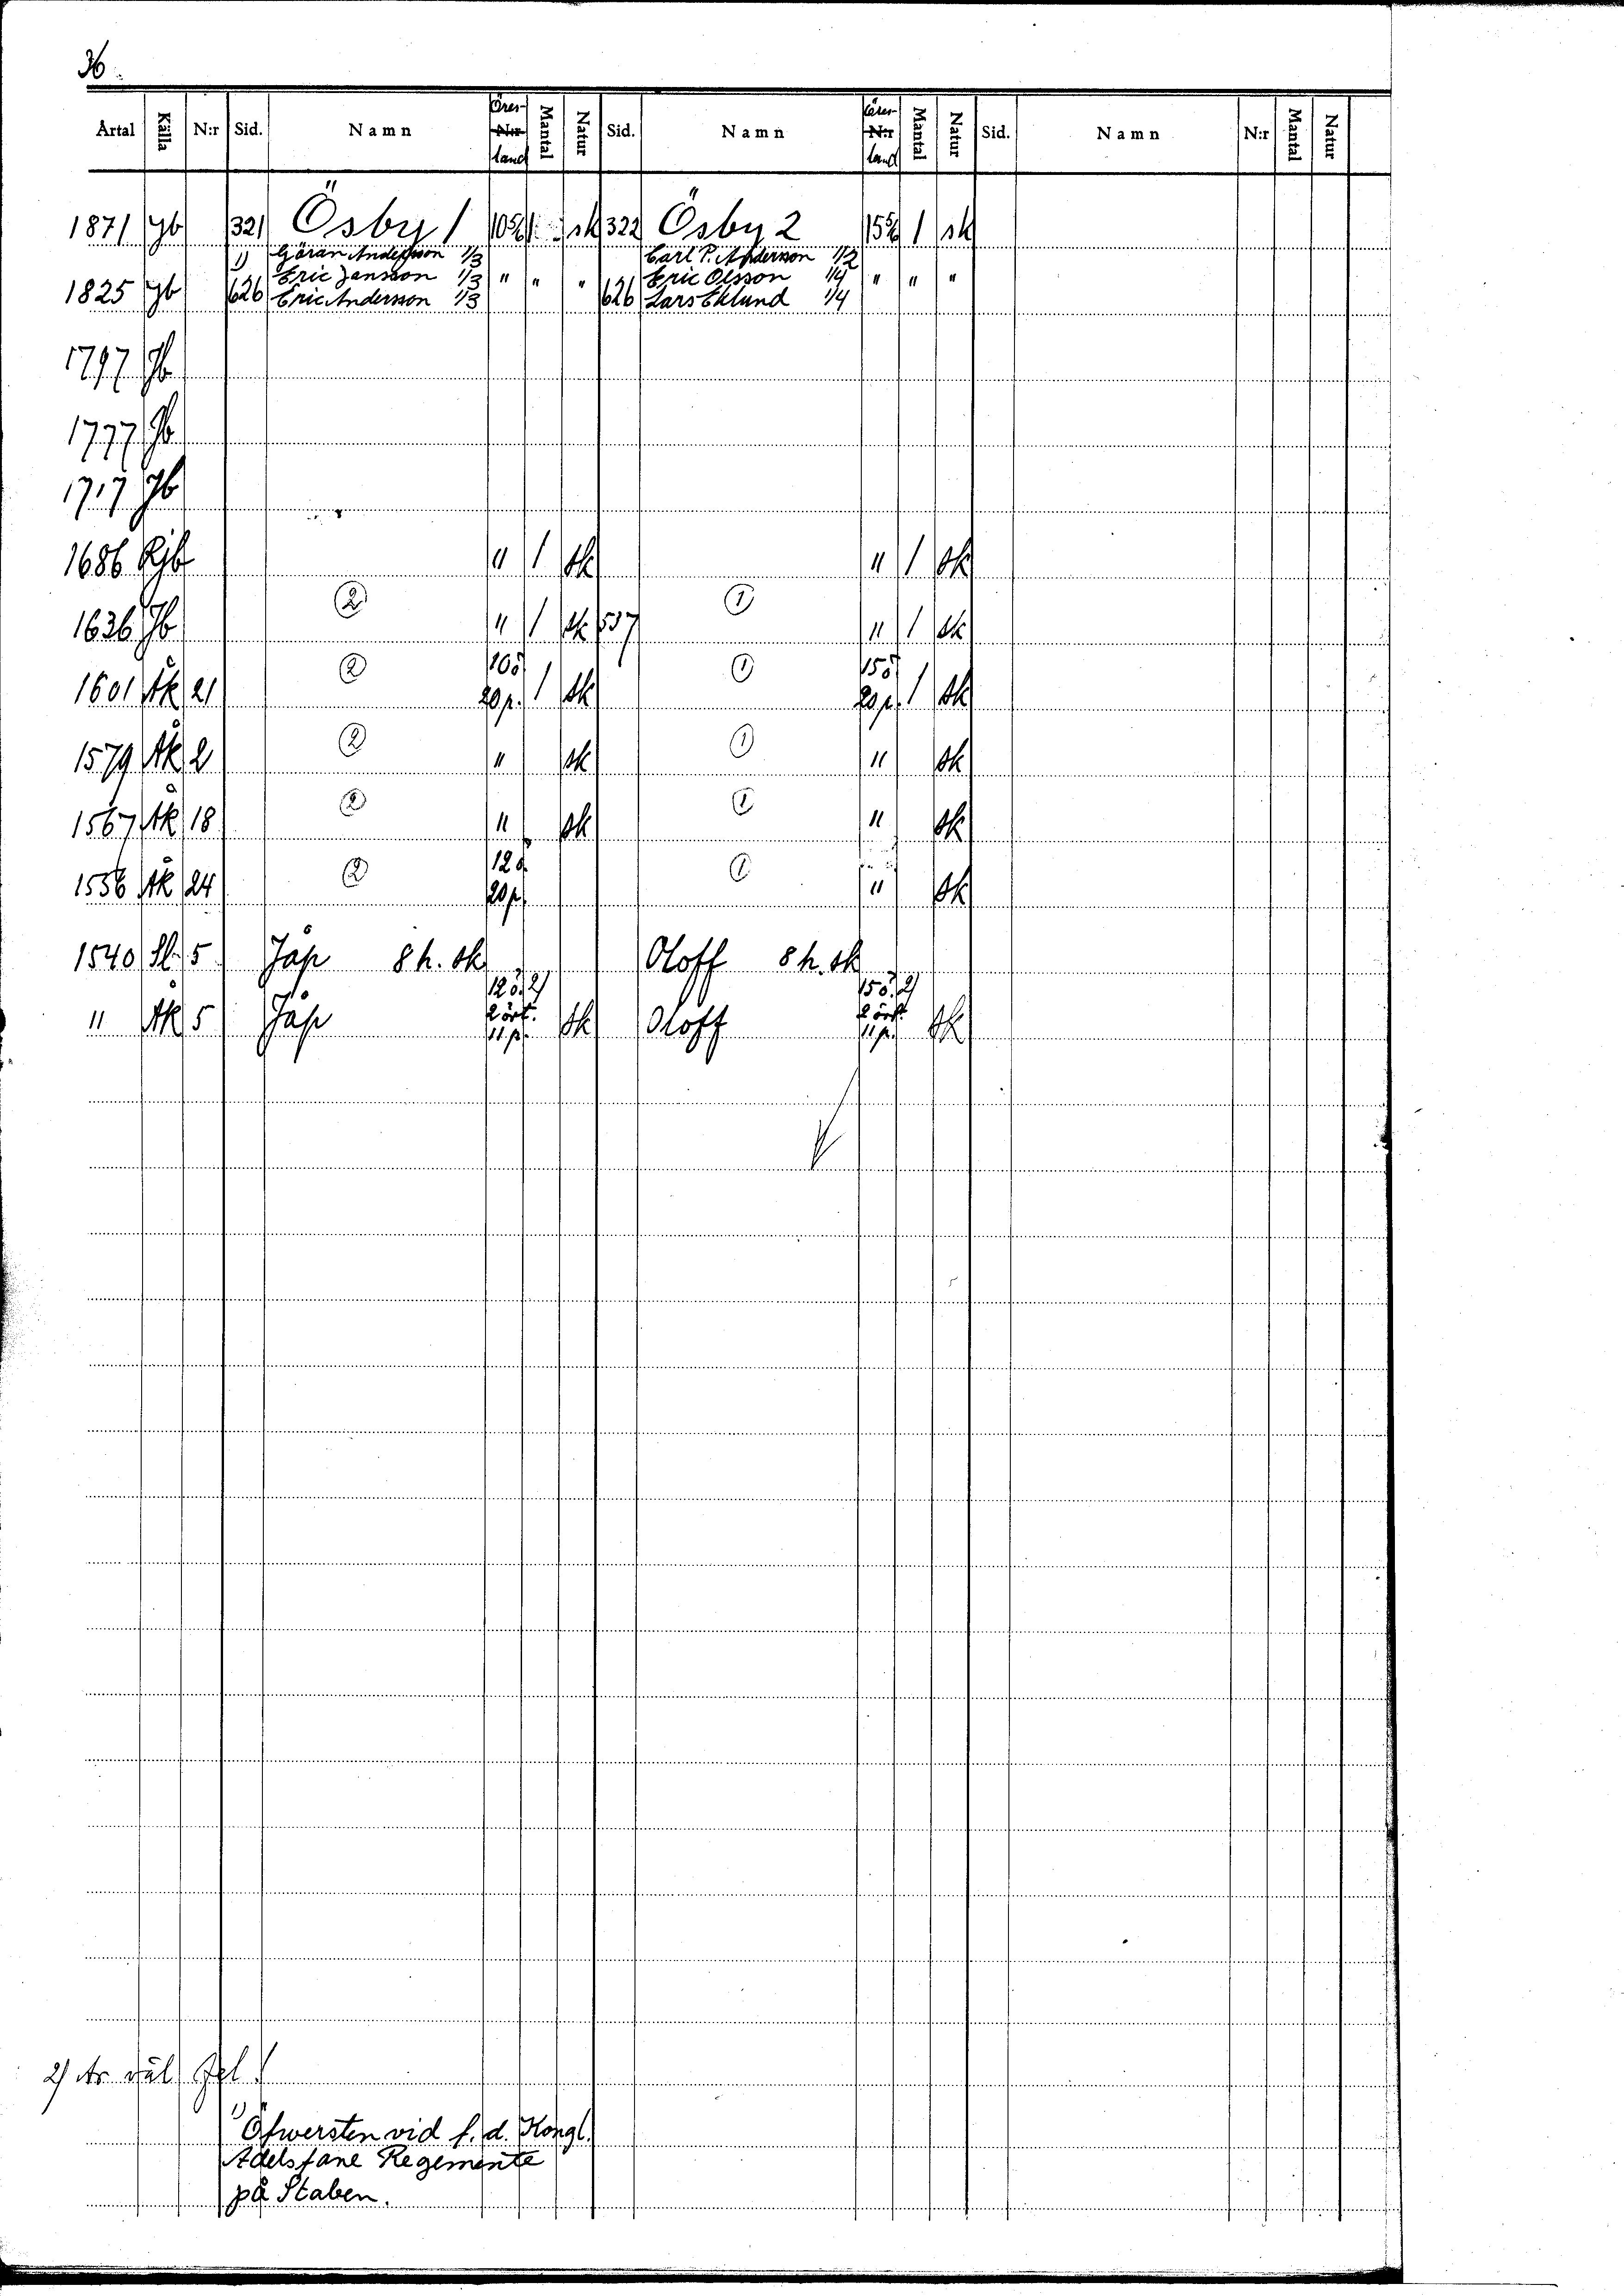 36.
Årtal Källa N:r Sid. Namn Öres- N:r land Mantal Natur Sid. Namn Öres- N:r land Mantal Natur Sid. Namn N:r Mantal Natur
1871 Jb 321 Ösby 1 10 1 sk 322 Ösby 2 15 1 sk
1) Göran Andersson 1/3 Carl P. Andersson 1/2
Eric Jansson 1/3 " " " Eric Olsson 1/4 " " "
1825 Jb 626 Eric Andersson 1/3 626 Lars Eklund 1/4
1797 Jb
1777 Jb
1717 Jb
1686 Rjb " 1 sk " 1 sk
1636 Jb 2 " 1 sk 537 1 " 1 sk
1601 Åk 21 2 10ö 20p. 1 sk 1 15ö 20p. 1 sk
1579 Åk 2 2 " sk 1 " sk
1567 Åk 18 2 " sk 1 " sk
1556 Åk 24 2 12ö. 20p. 1 " sk
1540 Sl. 5 Jåp 8 h. sk Oloff 8 h. sk
" Åk 5 Jåp 12ö. 2) 2 ört. 11 p. sk Oloff 15ö. 2) 2 ört. 11 p. sk
2) Är väl fel!
1) Öfwersten vid f. d. Kongl.
Adelsfane Regemente
på Staben.